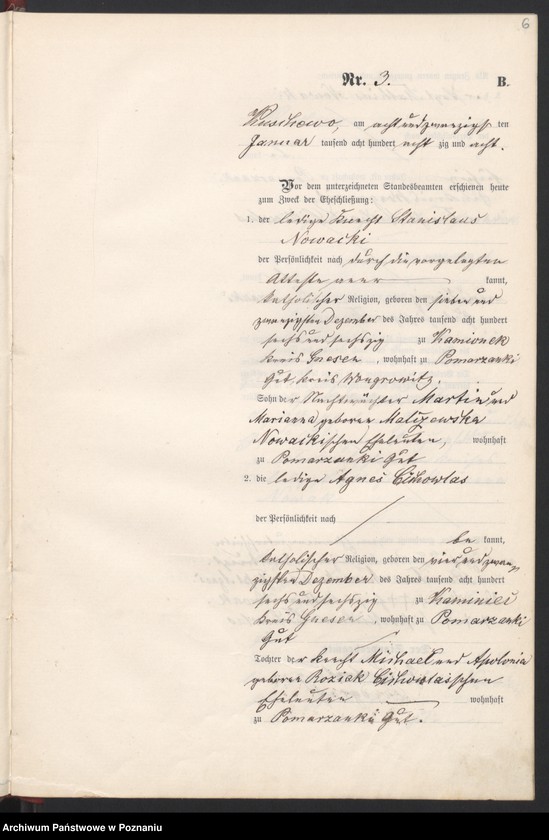 6
Nr. 3.
B.
Ruschowo, am achtundzwanzigsten
Januar tausend acht hundert achtzig und acht.
Vor dem unterzeichneten Standesbeamten erschienen heute
zum Zweck der Eheschließung:
1. der ledige Knecht Stanislaus
Nowacki
der Persönlichkeit nach durch die vorgelegten
Atteste aner kannt,
katholischer Religion, geboren den sieben und
zwanzigsten Dezember des Jahres tausend acht hundert
sechs und sechszig zu Kamionek
Kreis Gnesen, wohnhaft zu Pomarzanki
Gut, Kreis Wongrowitz.
Sohn der Nachtwächter Martin und
Marianna geboren Malczewska
Nowackischen Eheleuten, wohnhaft
zu Pomarzanki Gut
2. die ledige Agnes Cichowlas
der Persönlichkeit nach
be kannt,
katholischer Religion, geboren den vier und zwan
zigsten Dezember des Jahres tausend acht hundert
sechs und sechszig zu Kaminiec
Kreis Gnesen, wohnhaft zu Pomarzanki
Gut
Tochter der Knecht Michael und Apolonia
geboren Roziak Cichowlasschen
Eheleuten wohnhaft
zu Pomarzanki Gut.
Archiwum Państwowe w Poznaniu